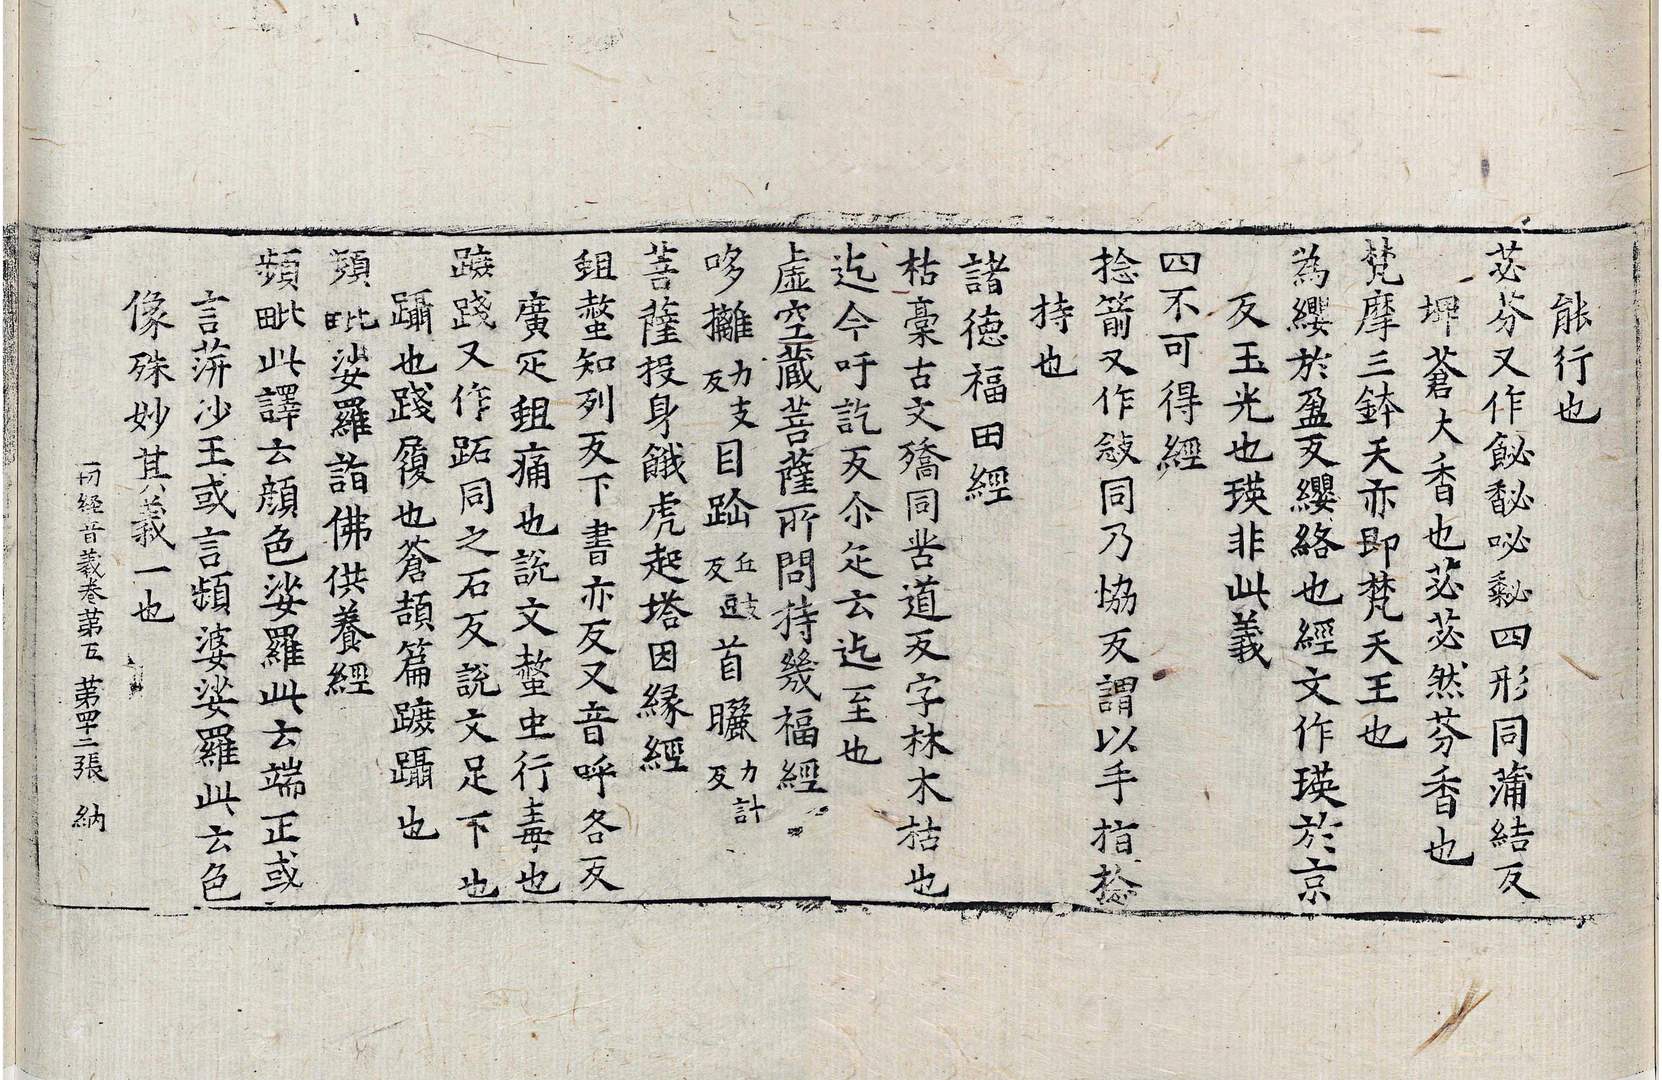 能行也
苾芬又作飶馝咇䬛四形同蒲結反
埤蒼大香也苾苾然芬香也
梵摩三鉢天亦即梵天王也
為纓於盈反纓絡也經文作瑛於京
反玉光也瑛非此義
四不可得經
捻箭又作敜同乃協反謂以手指捻
持也
諸德福田經
枯槀古文㱿同苦道反字林木枯也
迄今呼訖反尒疋云迄至也
虛空藏菩薩所問持幾福經
哆攡力支反目跲丘豉反首曬力計反
菩薩投身餓虎起塔因縁經
蛆螫知列反下書亦反又音呼各反
廣疋蛆痛也說文螫虫行毒也
蹠踐又作跖同之石反說文足下也
躡也踐履也蒼頡篇蹠躡也
蓱毗娑羅詣佛供養經
頻毗此譯云顔色娑羅此云端正或
言蓱沙王或言頻婆娑羅此云色
像殊妙其義一也
一切経音義卷第五 第四十二張 納